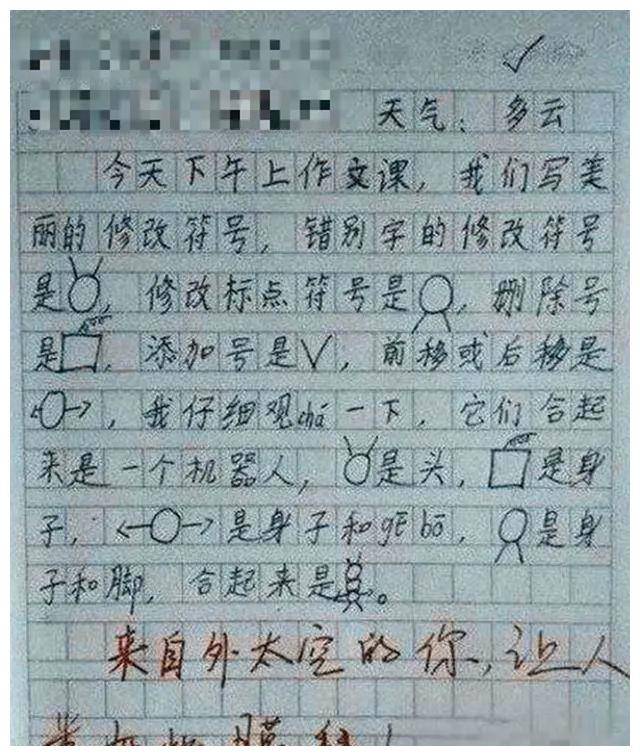 天气：多云
今天下午上作文课，我们写美
丽的修改符号，错别字的修改符号
是，修改标点符号是，删除号
是，添加号是√，前移或后移是
，我仔细观chá一下，它们合起
来是一个机器人，是头，是身
子，是身子和gē bō，是身
子和脚，合起来是。
来自外太空的你，让人